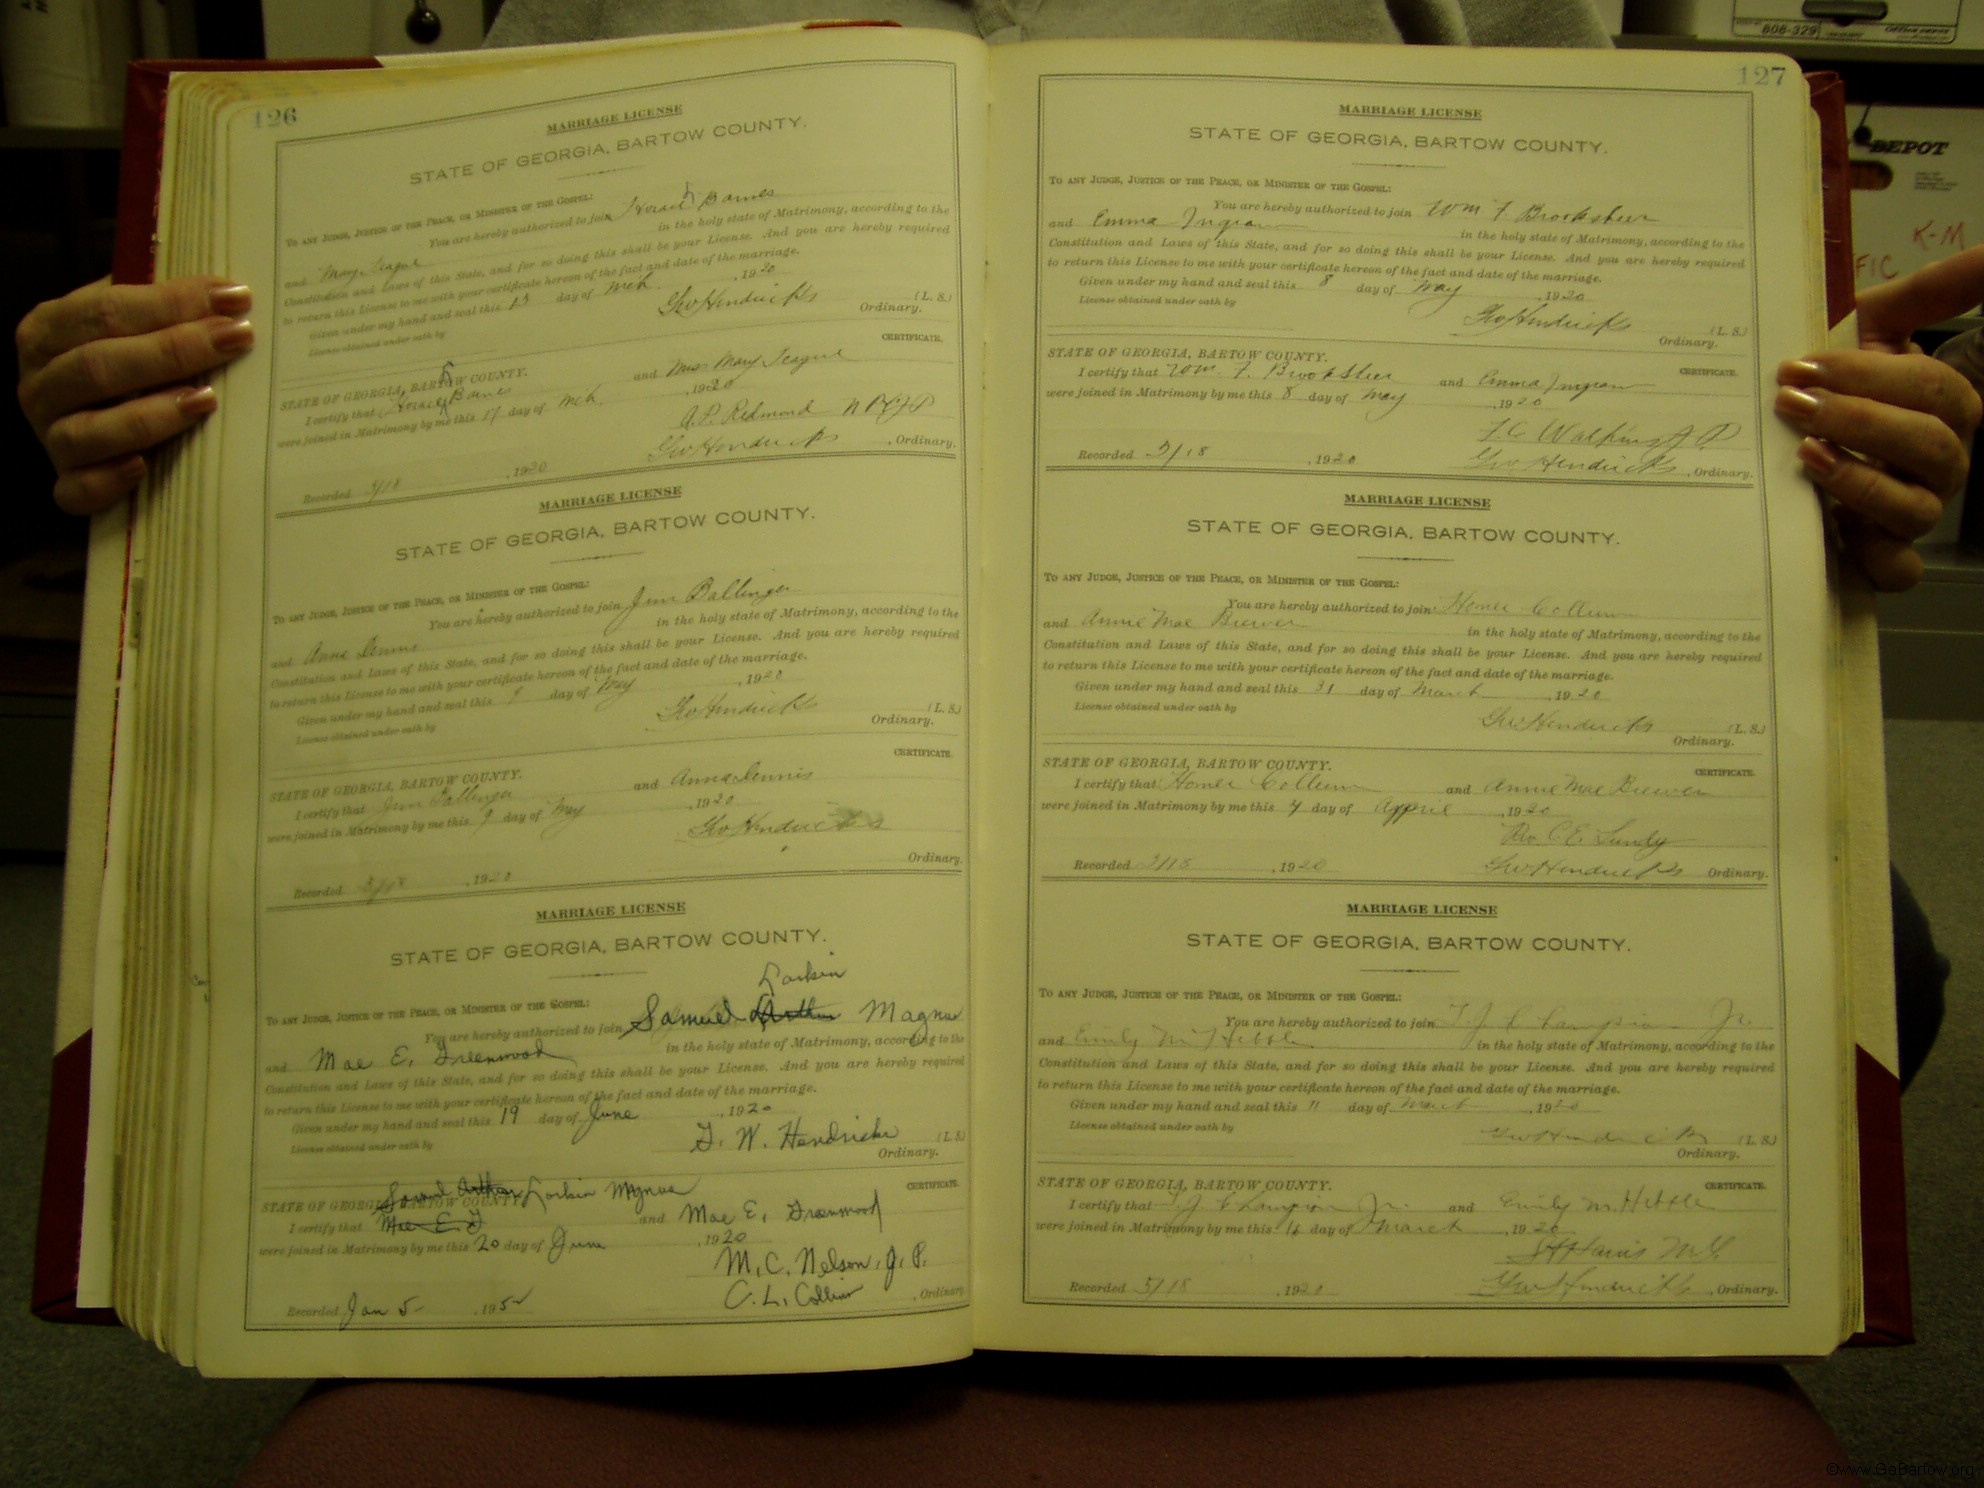 126
MARRIAGE LICENSE
STATE OF GEORGIA, BARTOW COUNTY.
TO ANY JUDGE, JUSTICE OF THE PEACE, OR MINISTER OF THE GOSPEL:
You are hereby authorized to join Horace Barnes
and Mary Teague in the holy state of Matrimony, according to the
Constitution and Laws of this State, and for so doing this shall be your License. And you are hereby required
to return this License to me with your certificate hereon of the fact and date of the marriage.
Given under my hand and seal this 13 day of Mch. , 1920
License obtained under oath by
Geo Hendricks (L. S.)
Ordinary.
CERTIFICATE.
STATE OF GEORGIA, BARTOW COUNTY.
I certify that Horace Barnes and Miss Mary Teague
were joined in Matrimony by me this 17 day of Mch. , 1920
A. P. Redmond N P & J P
Geo Hendricks , Ordinary.
Recorded 5/18 , 1920
MARRIAGE LICENSE
STATE OF GEORGIA, BARTOW COUNTY.
TO ANY JUDGE, JUSTICE OF THE PEACE, OR MINISTER OF THE GOSPEL:
You are hereby authorized to join Jim Ballinger
and Anna Dennis in the holy state of Matrimony, according to the
Constitution and Laws of this State, and for so doing this shall be your License. And you are hereby required
to return this License to me with your certificate hereon of the fact and date of the marriage.
Given under my hand and seal this 9 day of May , 1920
License obtained under oath by
Geo Hendricks (L. S.)
Ordinary.
CERTIFICATE.
STATE OF GEORGIA, BARTOW COUNTY.
I certify that Jim Ballinger and Anna Dennis
were joined in Matrimony by me this 9 day of May , 1920
Geo Hendricks
Ordinary.
Recorded 5/18 , 1920
MARRIAGE LICENSE
STATE OF GEORGIA, BARTOW COUNTY.
Larkin
TO ANY JUDGE, JUSTICE OF THE PEACE, OR MINISTER OF THE GOSPEL:
You are hereby authorized to join Samuel Arthur Magnus
and Mae E. Greenwood in the holy state of Matrimony, according to the
Constitution and Laws of this State, and for so doing this shall be your License. And you are hereby required
to return this License to me with your certificate hereon of the fact and date of the marriage.
Given under my hand and seal this 19 day of June , 1920
License obtained under oath by
G. W. Hendricks (L. S.)
Ordinary.
CERTIFICATE.
STATE OF GEORGIA, BARTOW COUNTY. Samuel Arthur Larkin Magnus
I certify that Mae E. G and Mae E. Greenwood
were joined in Matrimony by me this 20 day of June , 1920
M. C. Nelson, J. P.
C. L. Collins , Ordinary
Recorded Jan 5- , 195
127
MARRIAGE LICENSE
STATE OF GEORGIA, BARTOW COUNTY.
TO ANY JUDGE, JUSTICE OF THE PEACE, OR MINISTER OF THE GOSPEL:
You are hereby authorized to join Wm F Brooksheer
and Emma Ingram in the holy state of Matrimony, according to the
Constitution and Laws of this State, and for so doing this shall be your License. And you are hereby required
to return this License to me with your certificate hereon of the fact and date of the marriage.
Given under my hand and seal this 8 day of May , 1920
License obtained under oath by
Geo Hendricks (L. S.)
Ordinary.
STATE OF GEORGIA, BARTOW COUNTY.
CERTIFICATE.
I certify that Wm. F. Brooksheer and Emma Ingram
were joined in Matrimony by me this 8 day of May , 1920
J P
Recorded 5/18 , 1920 Geo Hendricks , Ordinary.
MARRIAGE LICENSE
STATE OF GEORGIA, BARTOW COUNTY.
TO ANY JUDGE, JUSTICE OF THE PEACE, OR MINISTER OF THE GOSPEL:
You are hereby authorized to join Homer Collum
and Annie Mae Brewer in the holy state of Matrimony, according to the
Constitution and Laws of this State, and for so doing this shall be your License. And you are hereby required
to return this License to me with your certificate hereon of the fact and date of the marriage.
Given under my hand and seal this 31 day of March , 1920
License obtained under oath by
Geo Hendricks (L. S.)
Ordinary.
STATE OF GEORGIA, BARTOW COUNTY.
CERTIFICATE.
I certify that Homer Collum and Annie Mae Brewer
were joined in Matrimony by me this 4 day of Appril , 1920
Rev C. E. Lundy
Recorded 5/18 , 1920 Geo Hendricks Ordinary.
MARRIAGE LICENSE
STATE OF GEORGIA, BARTOW COUNTY.
TO ANY JUDGE, JUSTICE OF THE PEACE, OR MINISTER OF THE GOSPEL:
You are hereby authorized to join T. J. Champion Jr.
and Emily M Hibble in the holy state of Matrimony, according to the
Constitution and Laws of this State, and for so doing this shall be your License. And you are hereby required
to return this License to me with your certificate hereon of the fact and date of the marriage.
Given under my hand and seal this 11 day of March , 1920
License obtained under oath by
Geo Hendricks (L. S.)
Ordinary.
STATE OF GEORGIA, BARTOW COUNTY.
CERTIFICATE.
I certify that T. J. Champion Jr. and Emily M. Hibble
were joined in Matrimony by me this day of March , 1920
Harris M. G.
Recorded 5/18 , 1920 Geo Hendricks , Ordinary.
808-329
Office DEPOT
DEPOT
K-M
FIC
©www.GaBartow.org